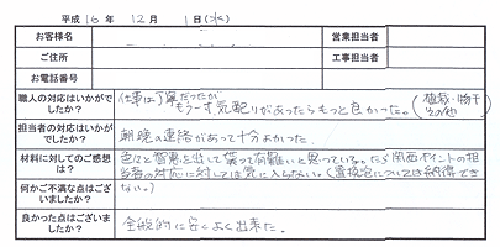 平成 16 年 12 月 1 日(水)
お客様名 営業担当者
ご住所 工事担当者
お電話番号
職人の対応はいかがでしたか?
仕事は丁寧だったが
もう一寸気配りがあったらもっと良かった。(植栽・物干 その他)
担当者の対応はいかがでしたか?
朝晩の連絡があって十分よかった。
材料に対してのご感想は?
色々と智恵を出して貰って有難いと思っている。ただ関西ペイントの担
当者の対応に対しては気に入らない。(電話
についても納得でき
何かご不満な点はございましたか?
ない。)
良かった点はございましたか?
全般的に良くよく出来た。